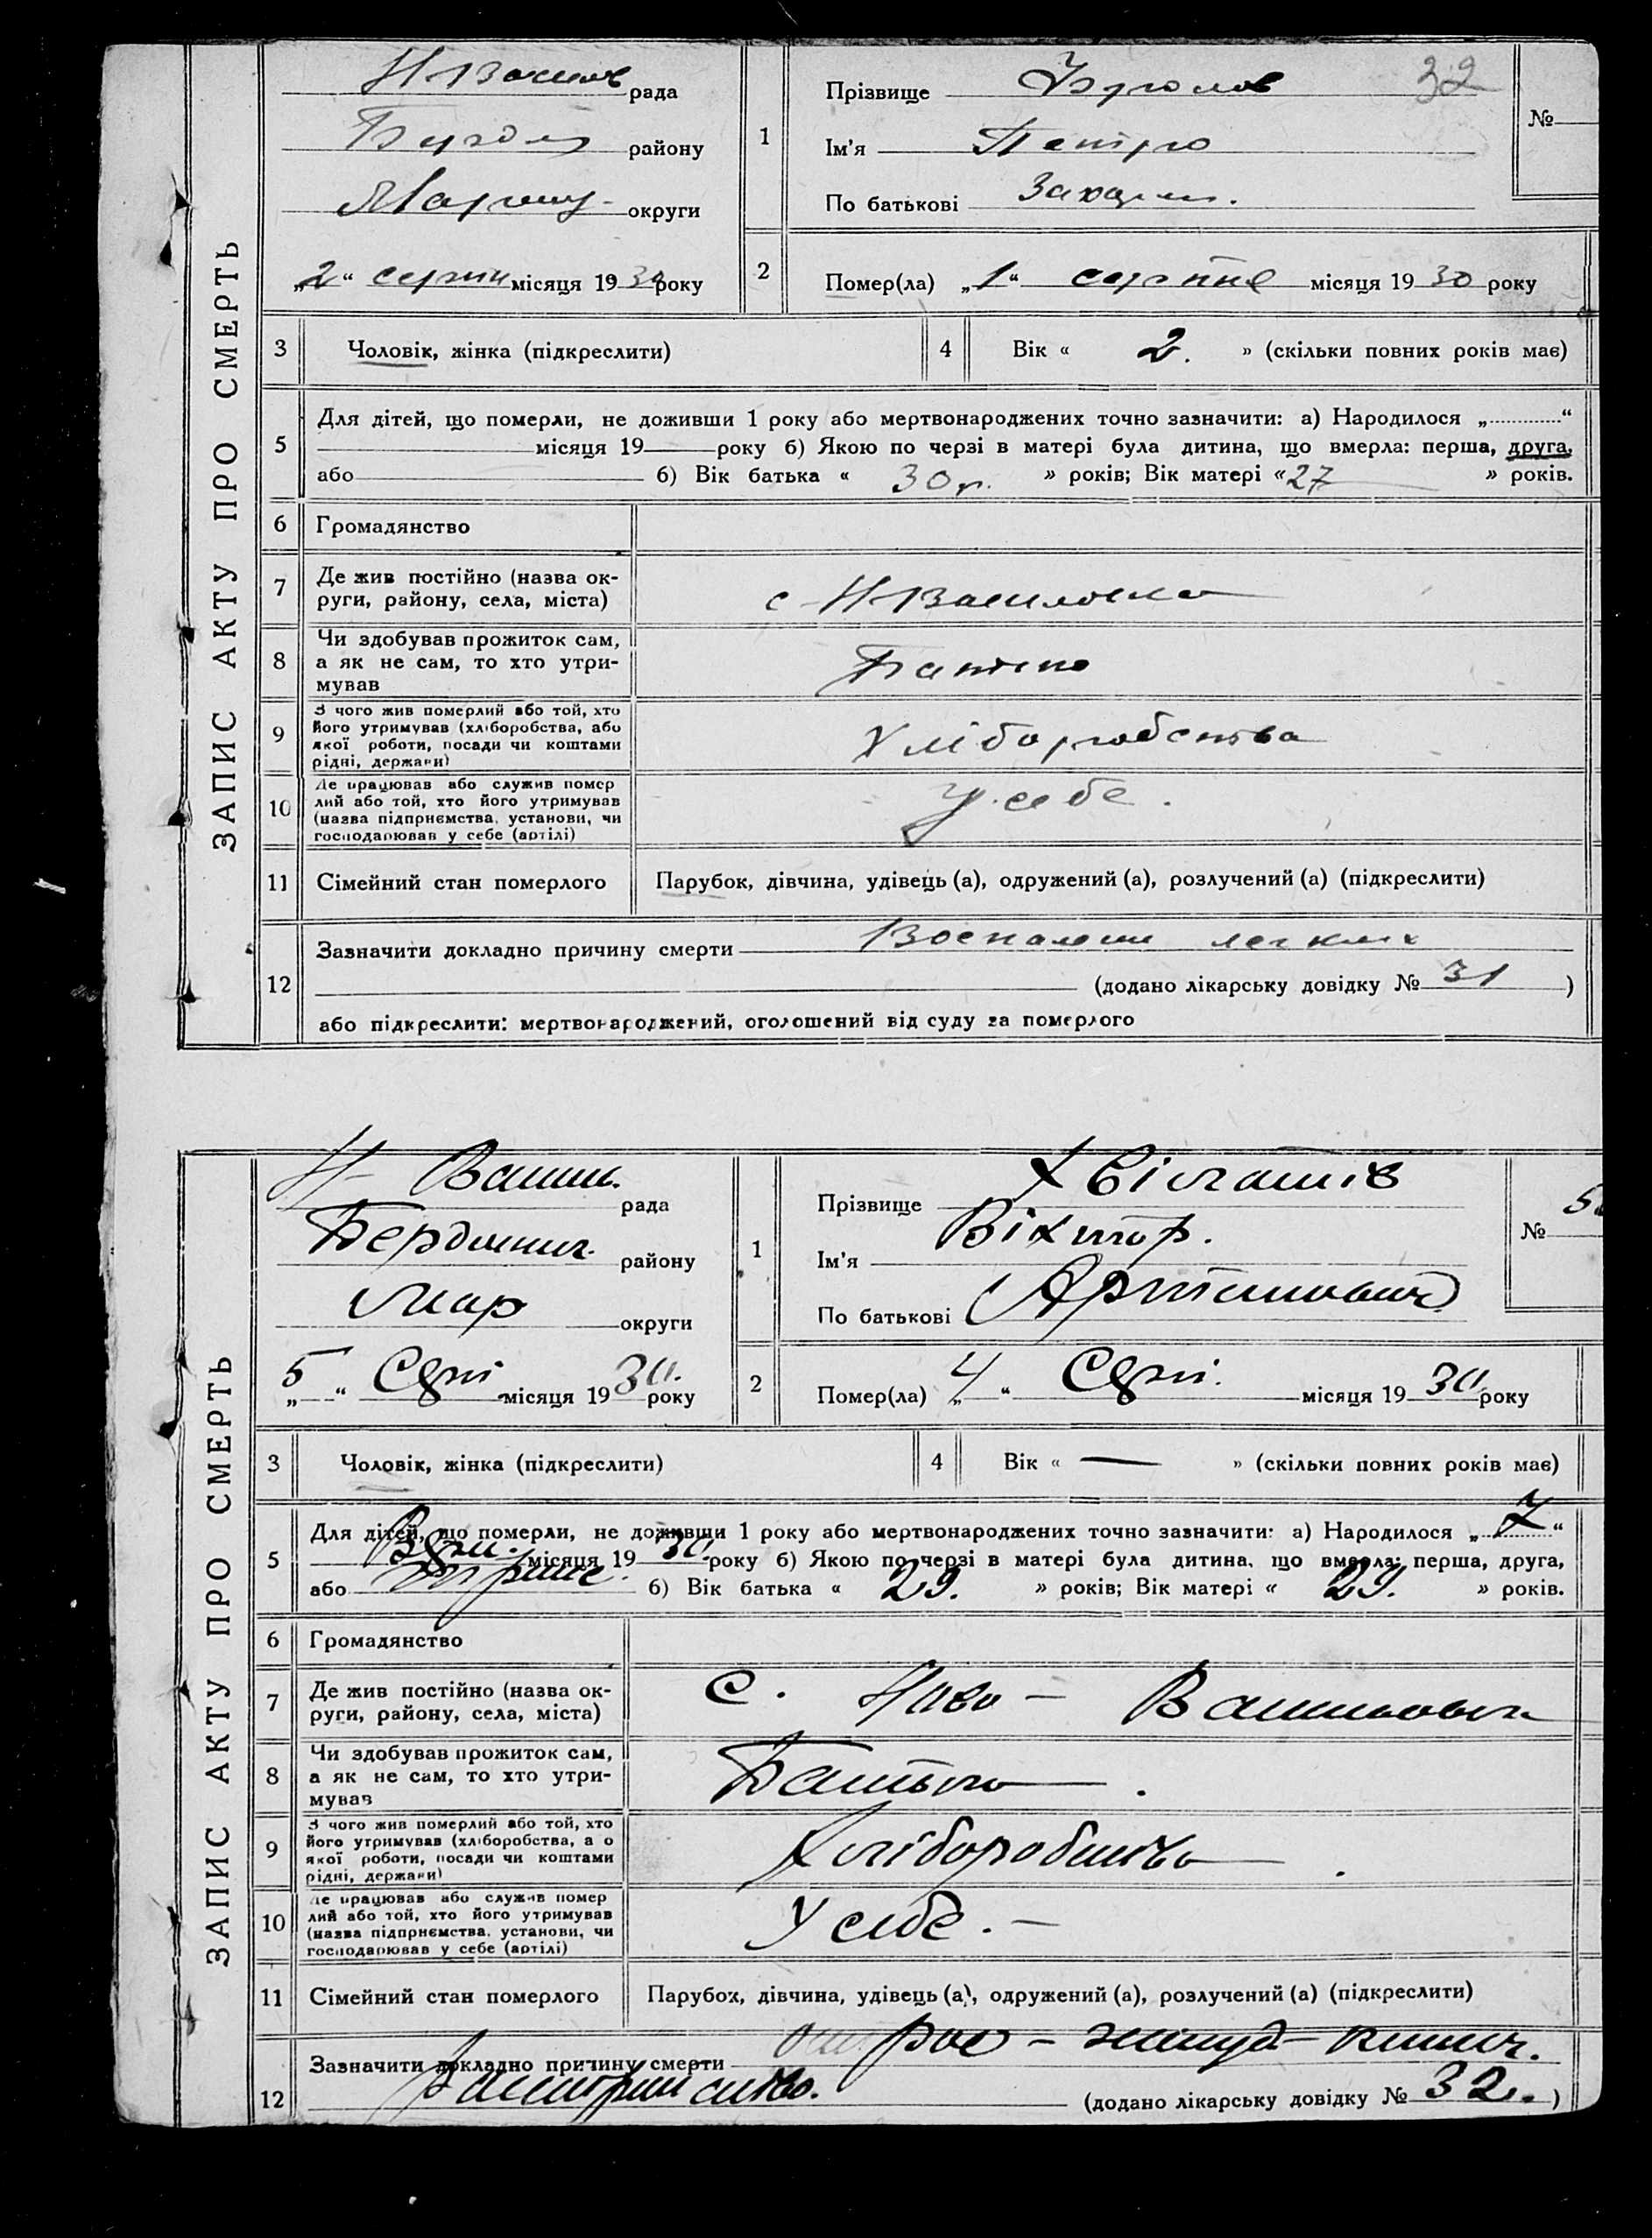 ЗАПИС АКТУ ПРО СМЕРТЬ
рада
району
округи
„2“ серпн місяця 1930 року
1
Прізвище
32
Ім'я Петро
По батькові Захар
№
2
Помер(ла) „1“ серпня місяця 1930 року
3 Чоловік, жінка (підкреслити)
4 Вік « 2. » (скільки повних років має)
5
Для дітей, що померли, не доживши 1 року або мертвонароджених точно зазначити: а) Народилося „ “
місяця 19 року б) Якою по черзі в матері була дитина, що вмерла: перша, друга,
або б) Вік батька « 30 р. » років; Вік матері « 27 » років.
6 Громадянство
7
Де жив постійно (назва ок-
руги, району, села, міста)
с-Н-Василовка
8
Чи здобував прожиток сам,
а як не сам, то хто утри-
мував
Батько
9
З чого жив померлий або той, хто
його утримував (хліборобства, або
якої роботи, посади чи коштами
рідні, держави)
Хліборобства
10
Де працював або служив помер
лий або той, хто його утримував
(назва підприємства, установи, чи
господарював у себе (артілі)
У себе.
11 Сімейний стан померлого
Парубок, дівчина, удівець (а), одружений (а), розлучений (а) (підкреслити)
12
Зазначити докладно причину смерти Воспалени легких
(додано лікарську довідку № 31 )
або підкреслити: мертвонароджений, оголошений від суду за померлого
ЗАПИС АКТУ ПРО СМЕРТЬ
рада
району
Мар округи
„5“ Серп місяця 1930 року
1
Прізвище
Ім'я Віктор.
По батькові Артемович
№ 5
2
Помер(ла) „4“ Серп. місяця 1930 року
3 Чоловік, жінка (підкреслити)
4 Вік « — » (скільки повних років має)
5
Для дітей, що померли, не доживши 1 року або мертвонароджених точно зазначити: а) Народилося „7“
місяця 1930. року б) Якою по черзі в матері була дитина, що вмерла: перша, друга,
або б) Вік батька « 29. » років; Вік матері « 29. » років.
6 Громадянство
7
Де жив постійно (назва ок-
руги, району, села, міста)
С. Ново - Васильовка
8
Чи здобував прожиток сам,
а як не сам, то хто утри-
мував
Батько.
9
З чого жив померлий або той, хто
його утримував (хліборобства, а о
якої роботи, посади чи коштами
рідні, держави)
Хліборобство.
10
Де працював або служив помер
лий або той, хто його утримував
(назва підприємства, установи, чи
господарював у себе (артілі)
У себе. -
11 Сімейний стан померлого
Парубок, дівчина, удівець (а), одружений (а), розлучений (а) (підкреслити)
12
Зазначити докладно причину смерти острое - желуд - кишеч.
(додано лікарську довідку № 32. )